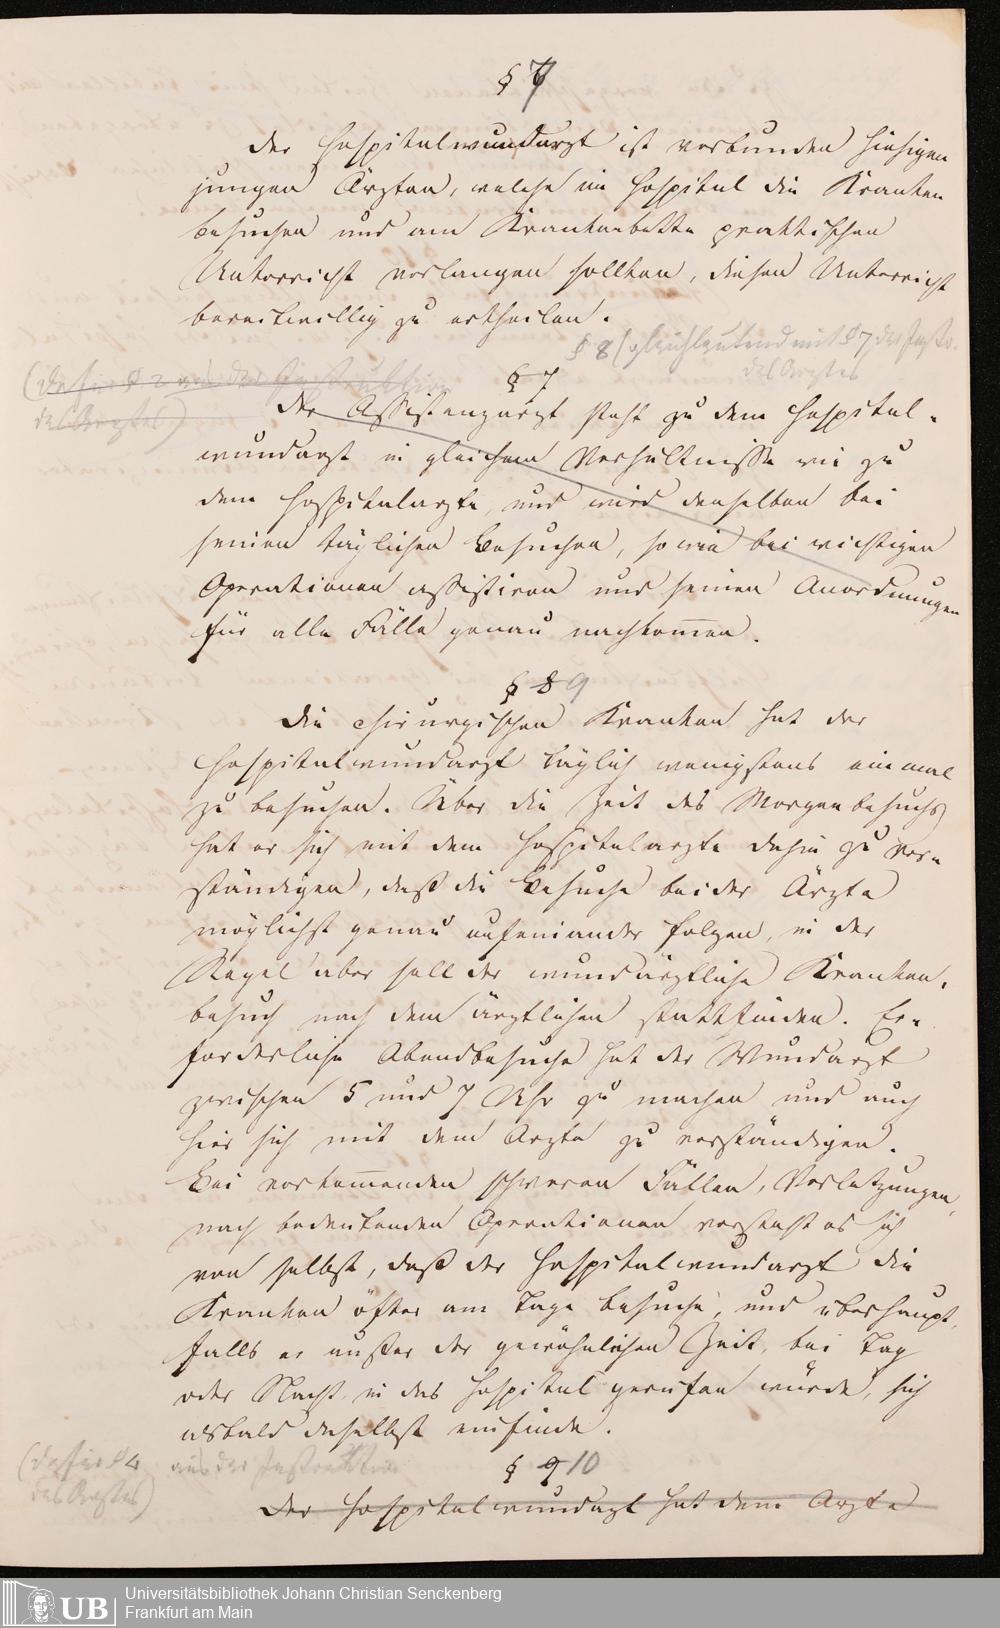 § 7
Der Hospitalwundarzt ist verbunden hiesigen
jungen Ärzten, welche im Hospital die Kranken
besuchen und am Krankenbette praktischen
Unterricht verlangen sollten, diesen Unterricht
bereitwillig zu ertheilen.
§ 8 (gleichlautend mit § 7, der Instr.
des Arztes
(dafür § 2 aus der Instruktion
des Arztes)
§ 7
Der Assistenzarzt steht zu dem Hospital-
wundarzt in gleichem Verhältnisse wie zu
dem Hospitalarzte, und wird denselben bei
seinen täglichen Besuchen, sowie bei wichtigen
Operationen assistiren und seinen Anordnungen
für alle Fälle genau nachkom̅en.
§ 8 9
Die chirurgischen Kranken hat der
Hospitalwundarzt täglich wenigstens einmal
zu besuchen. Über die Zeit des Morgenbesuchs
hat er sich mit dem Hospitalarzte dahin zu ver-
ständigen, daß die Besuche beider Ärzte
möglichst genau aufeinander folgen, in der
Regel aber soll der wundärztliche Kranken-
besuch nach dem ärztlichen stattfinden. Er-
forderliche Abendbesuche hat der Wundarzt
zwischen 5 und 7 Uhr zu machen und auch
hier sich mit dem Arzte zu verständigen.
Bei vorkom̅enden schweren Fällen, Verletzungen,
nach bedeutenden Operationen versteht es sich
von selbst, daß der Hospitalwundarzt die
Kranken öfter am Tage besuche, und überhaupt,
falls er außer der gewöhnlichen Zeit, bei Tag
oder Nacht in das Hospital gerufen würde, sich
alsbald daselbst einfinde.
(dafür § 4 aus der Instruktion
des Arztes)
§ 9 10
Der Hospitalwundarzt hat dem Arzte
Universitätsbibliothek Johann Christian Senckenberg
Frankfurt am Main
UB